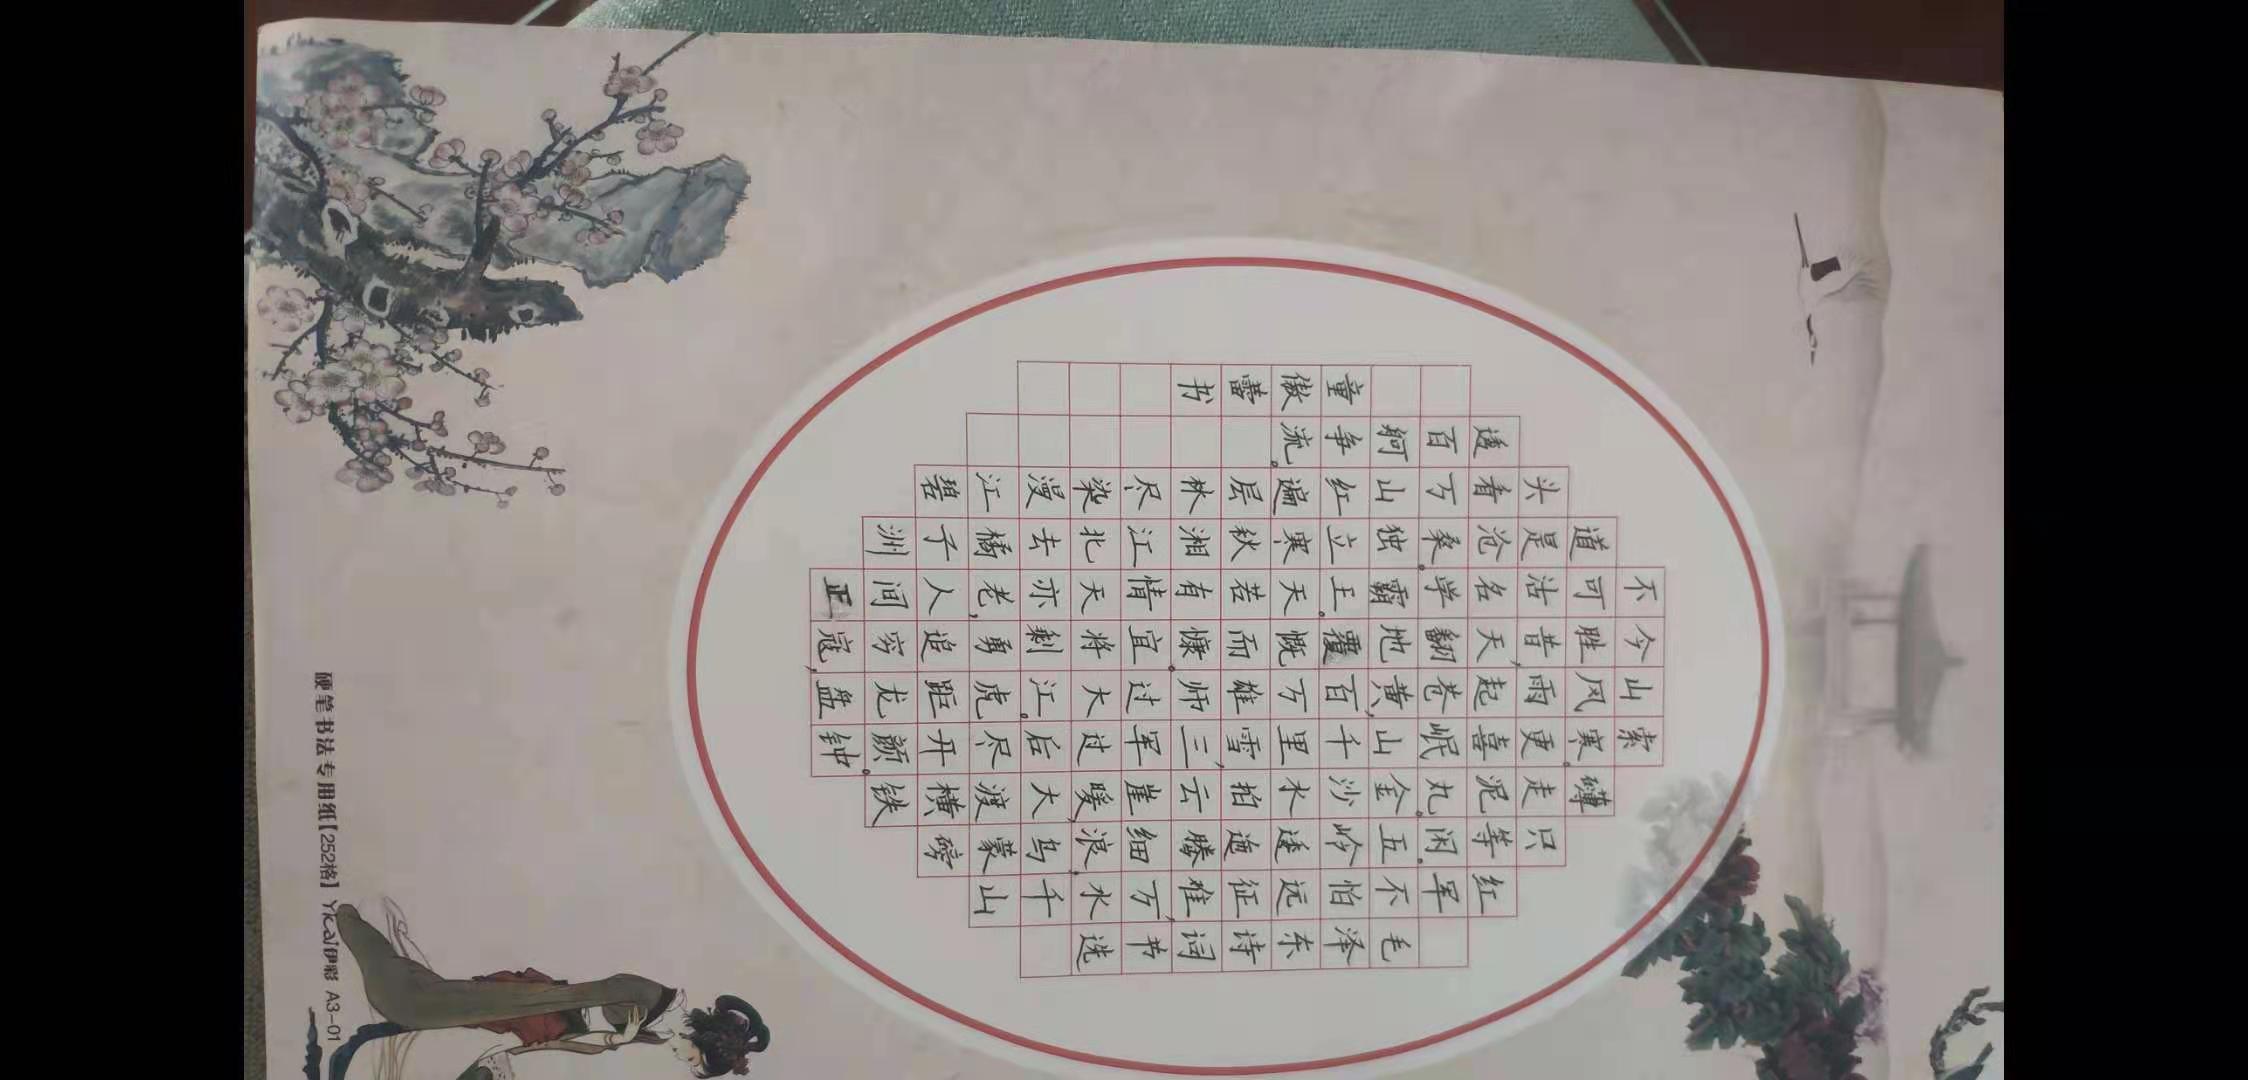 毛泽东诗词书选
红军不怕远征难,万水千山
只等闲。五岭逶迤腾细浪,乌蒙磅
礴走泥丸。金沙水拍云崖暖,大渡横铁
索寒。更喜岷山千里雪,三军过后尽开颜。钟
山风雨起苍黄,百万雄师过大江。虎距龙盘
今胜昔,天翻地覆慨而慷。宜将剩勇追穷寇,
不可沽名学霸王。天若有情天亦老,人间正
道是沧桑。独立寒秋湘江北去橘子洲
头看万山红遍层林尽染漫江碧
透百舸争流。
童傲书
硬笔书法专用纸【252格】 Yicai伊彩 A3-01